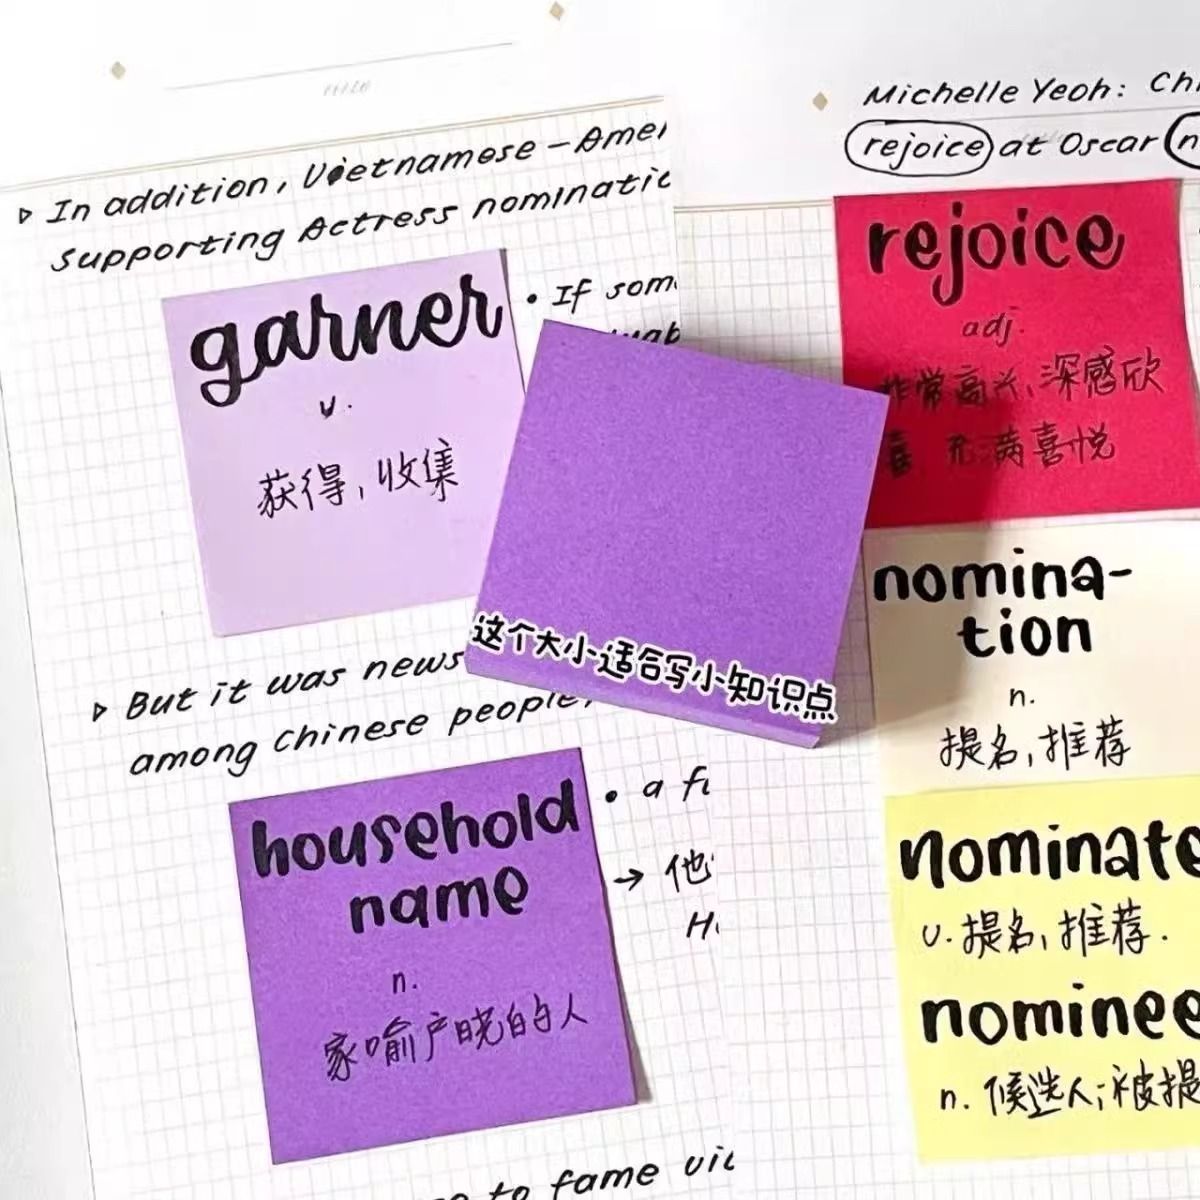 ▷ In addition, Vietnamese-Amer
Supporting Actress nominatio
garner
v.
获得,收集
• If som
▷ But it was news
among Chinese people,
household
name
n.
家喻户晓的人
• a fi
→ 他
H
to fame vic
这个大小适合写小知识点
Michelle Yeoh: Chi
rejoice at Oscar n
rejoice
adj.
非常高兴,深感欣
喜 充满喜悦
nomina-
tion
n.
提名,推荐
nominate
v. 提名,推荐.
nominee
n. 候选人;被提